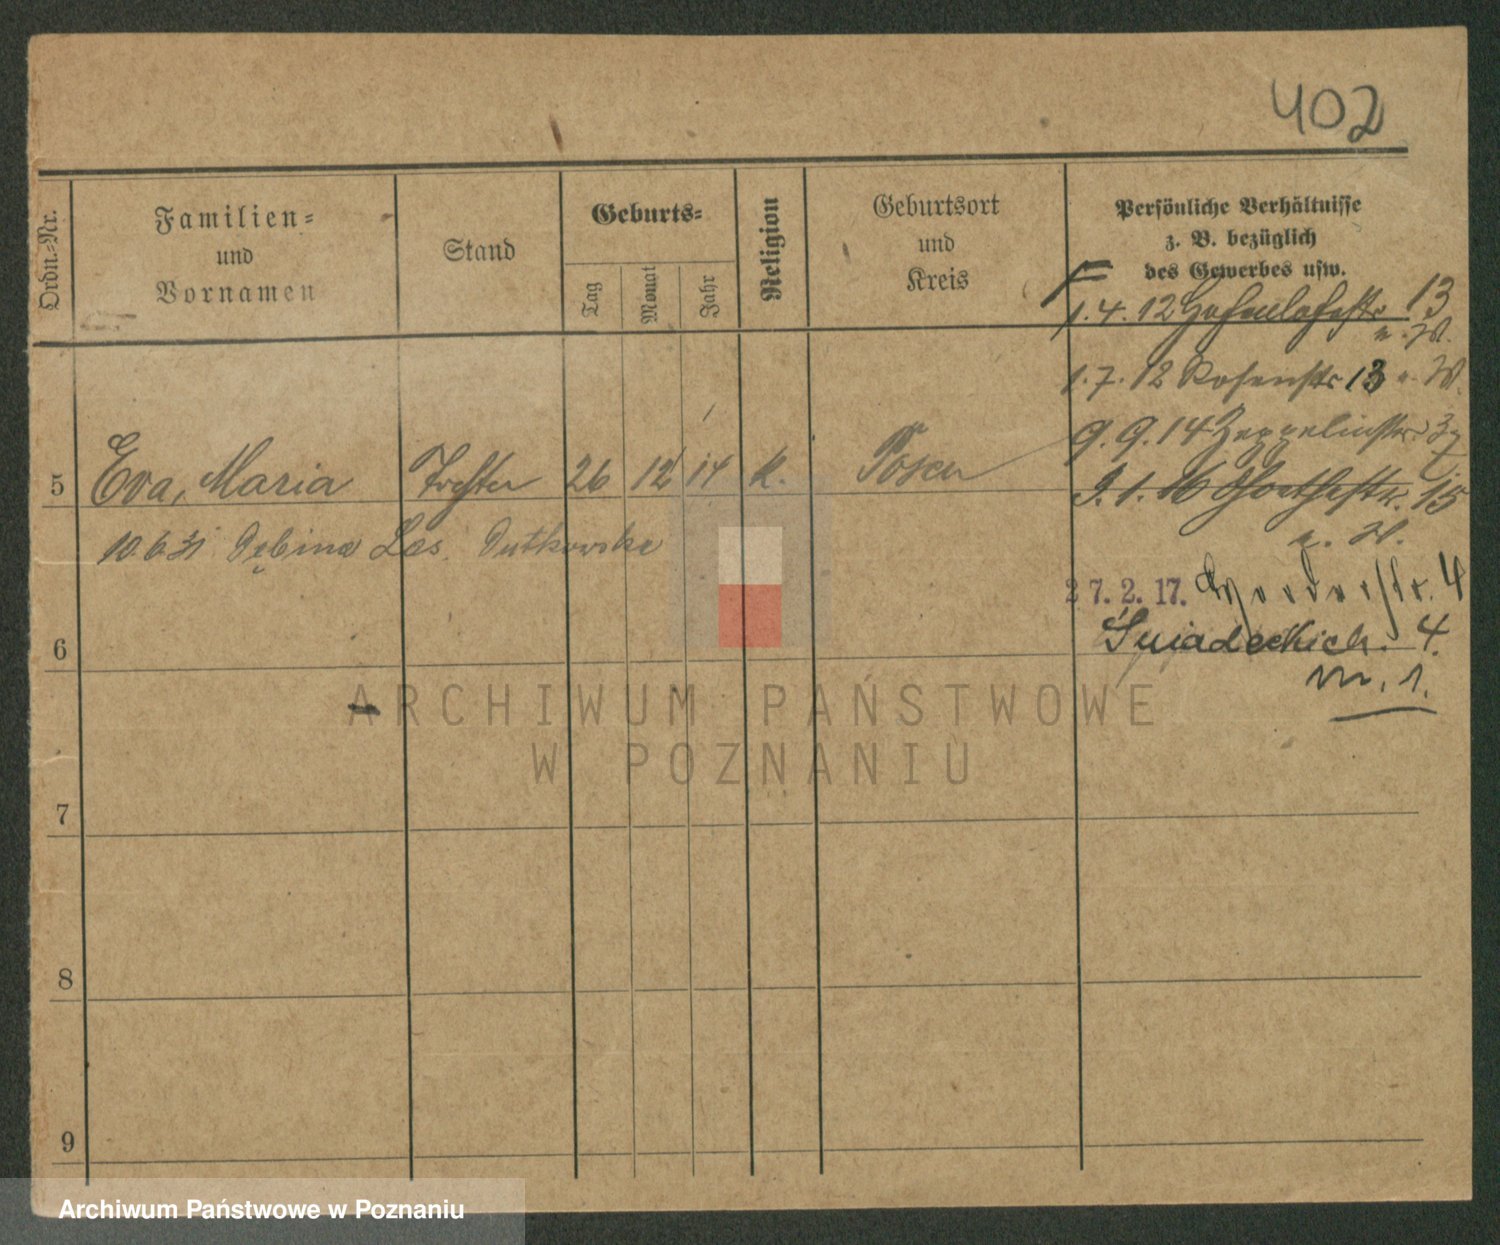 402
Ordn.-Nr.
Familien-
und
Vornamen
Stand
Geburts-
Tag
Monat
Jahr
Religion
Geburtsort
und
Kreis
Persönliche Verhältnisse
z. B. bezüglich
des Gewerbes usw.
1.4.12 Hohenlohestr. 13
u. W.
1.7.12 Rosenstr. 13 u. W.
9.9.14 Zeppelinstr.
5 Eva, Maria Tochter 26 12 14 k. Posen
9.1.16 Goethestr. 15
u. W.
10.6.31 Dębina Las. Dutkowske
27.2.17. 4
Śniadeckich. 4.
6
m. 1.
ARCHIWUM PAŃSTWOWE
W POZNANIU
7
8
9
Archiwum Państwowe w Poznaniu